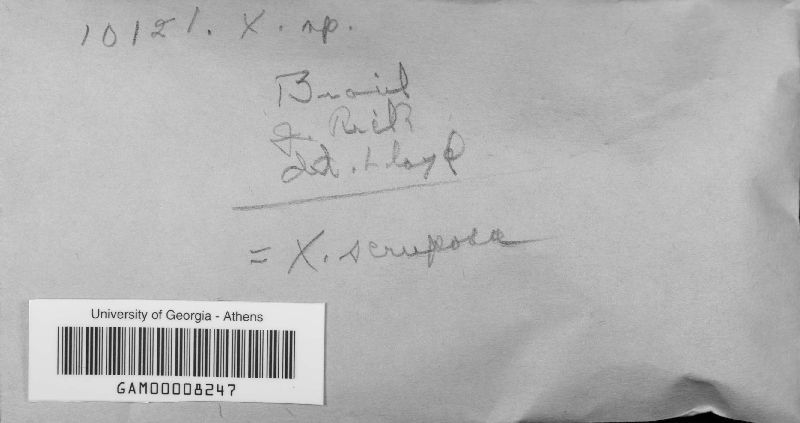 10121. X. sp.
Brazil
J. Rick
det. Lloyd
= X. scruposa
University of Georgia - Athens
GAM00008247